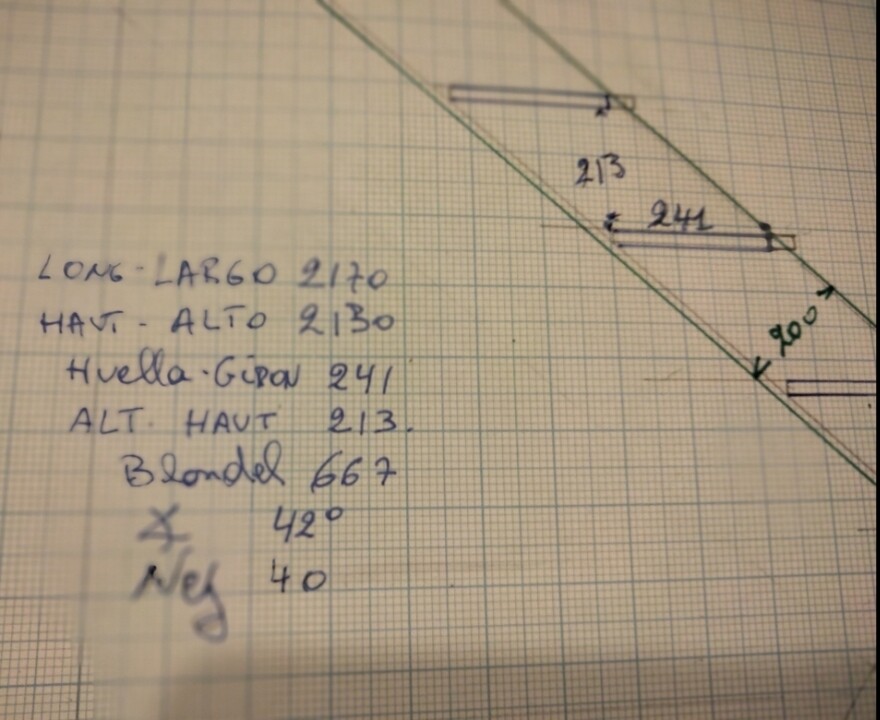 213
241
200
LONG-LARGO 2170
HAUT-ALTO 2130
Huella-GIRON 241
ALT. HAUT 213.
Blondel 667
∡ 42°
Nez 40